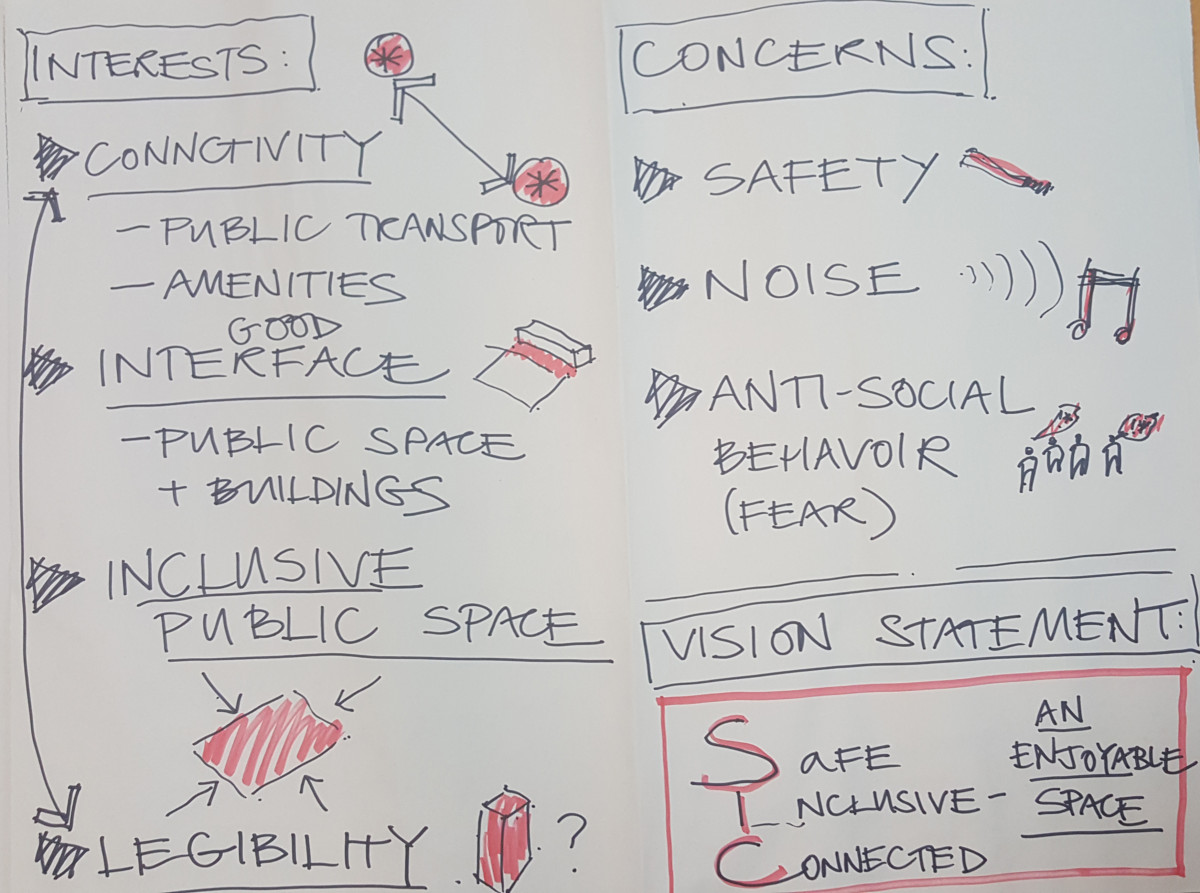 INTERESTS:
CONNCTIVITY
- PUBLIC TRANSPORT
- AMENITIES
GOOD
INTERFACE
- PUBLIC SPACE
+ BUILDINGS
INCLUSIVE
PUBLIC SPACE
LEGIBILITY ?
CONCERNS:
SAFETY
NOISE
ANTI-SOCIAL
BEHAVOIR
(FEAR)
VISION STATEMENT:
SAFE
INCLUSIVE -
CONNECTED
AN
ENJOYABLE
SPACE